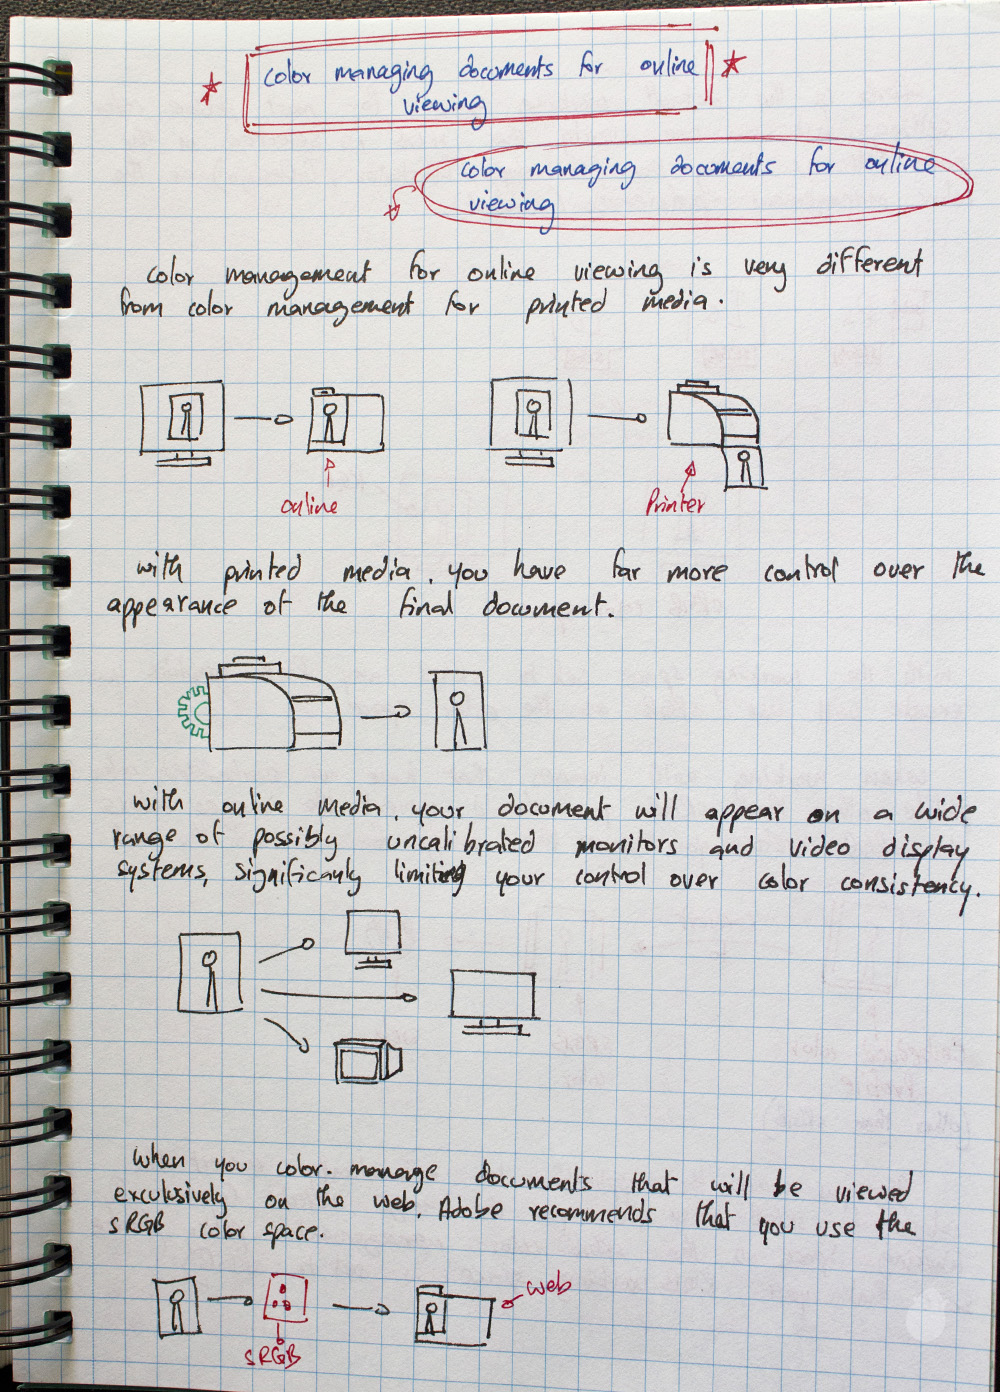 color managing documents for online
viewing
color managing documents for online
viewing
color management for online viewing is very different
from color management for printed media.
online
Printer
with printed media, you have far more control over the
appearance of the final document.
with online media, your document will appear on a wide
range of possibly uncalibrated monitors and video display
systems, significanly limiting your control over color consistency.
when you color-manage documents that will be viewed
exculusively on the web, Adobe recommends that you use the
sRGB color space.
web
sRGB